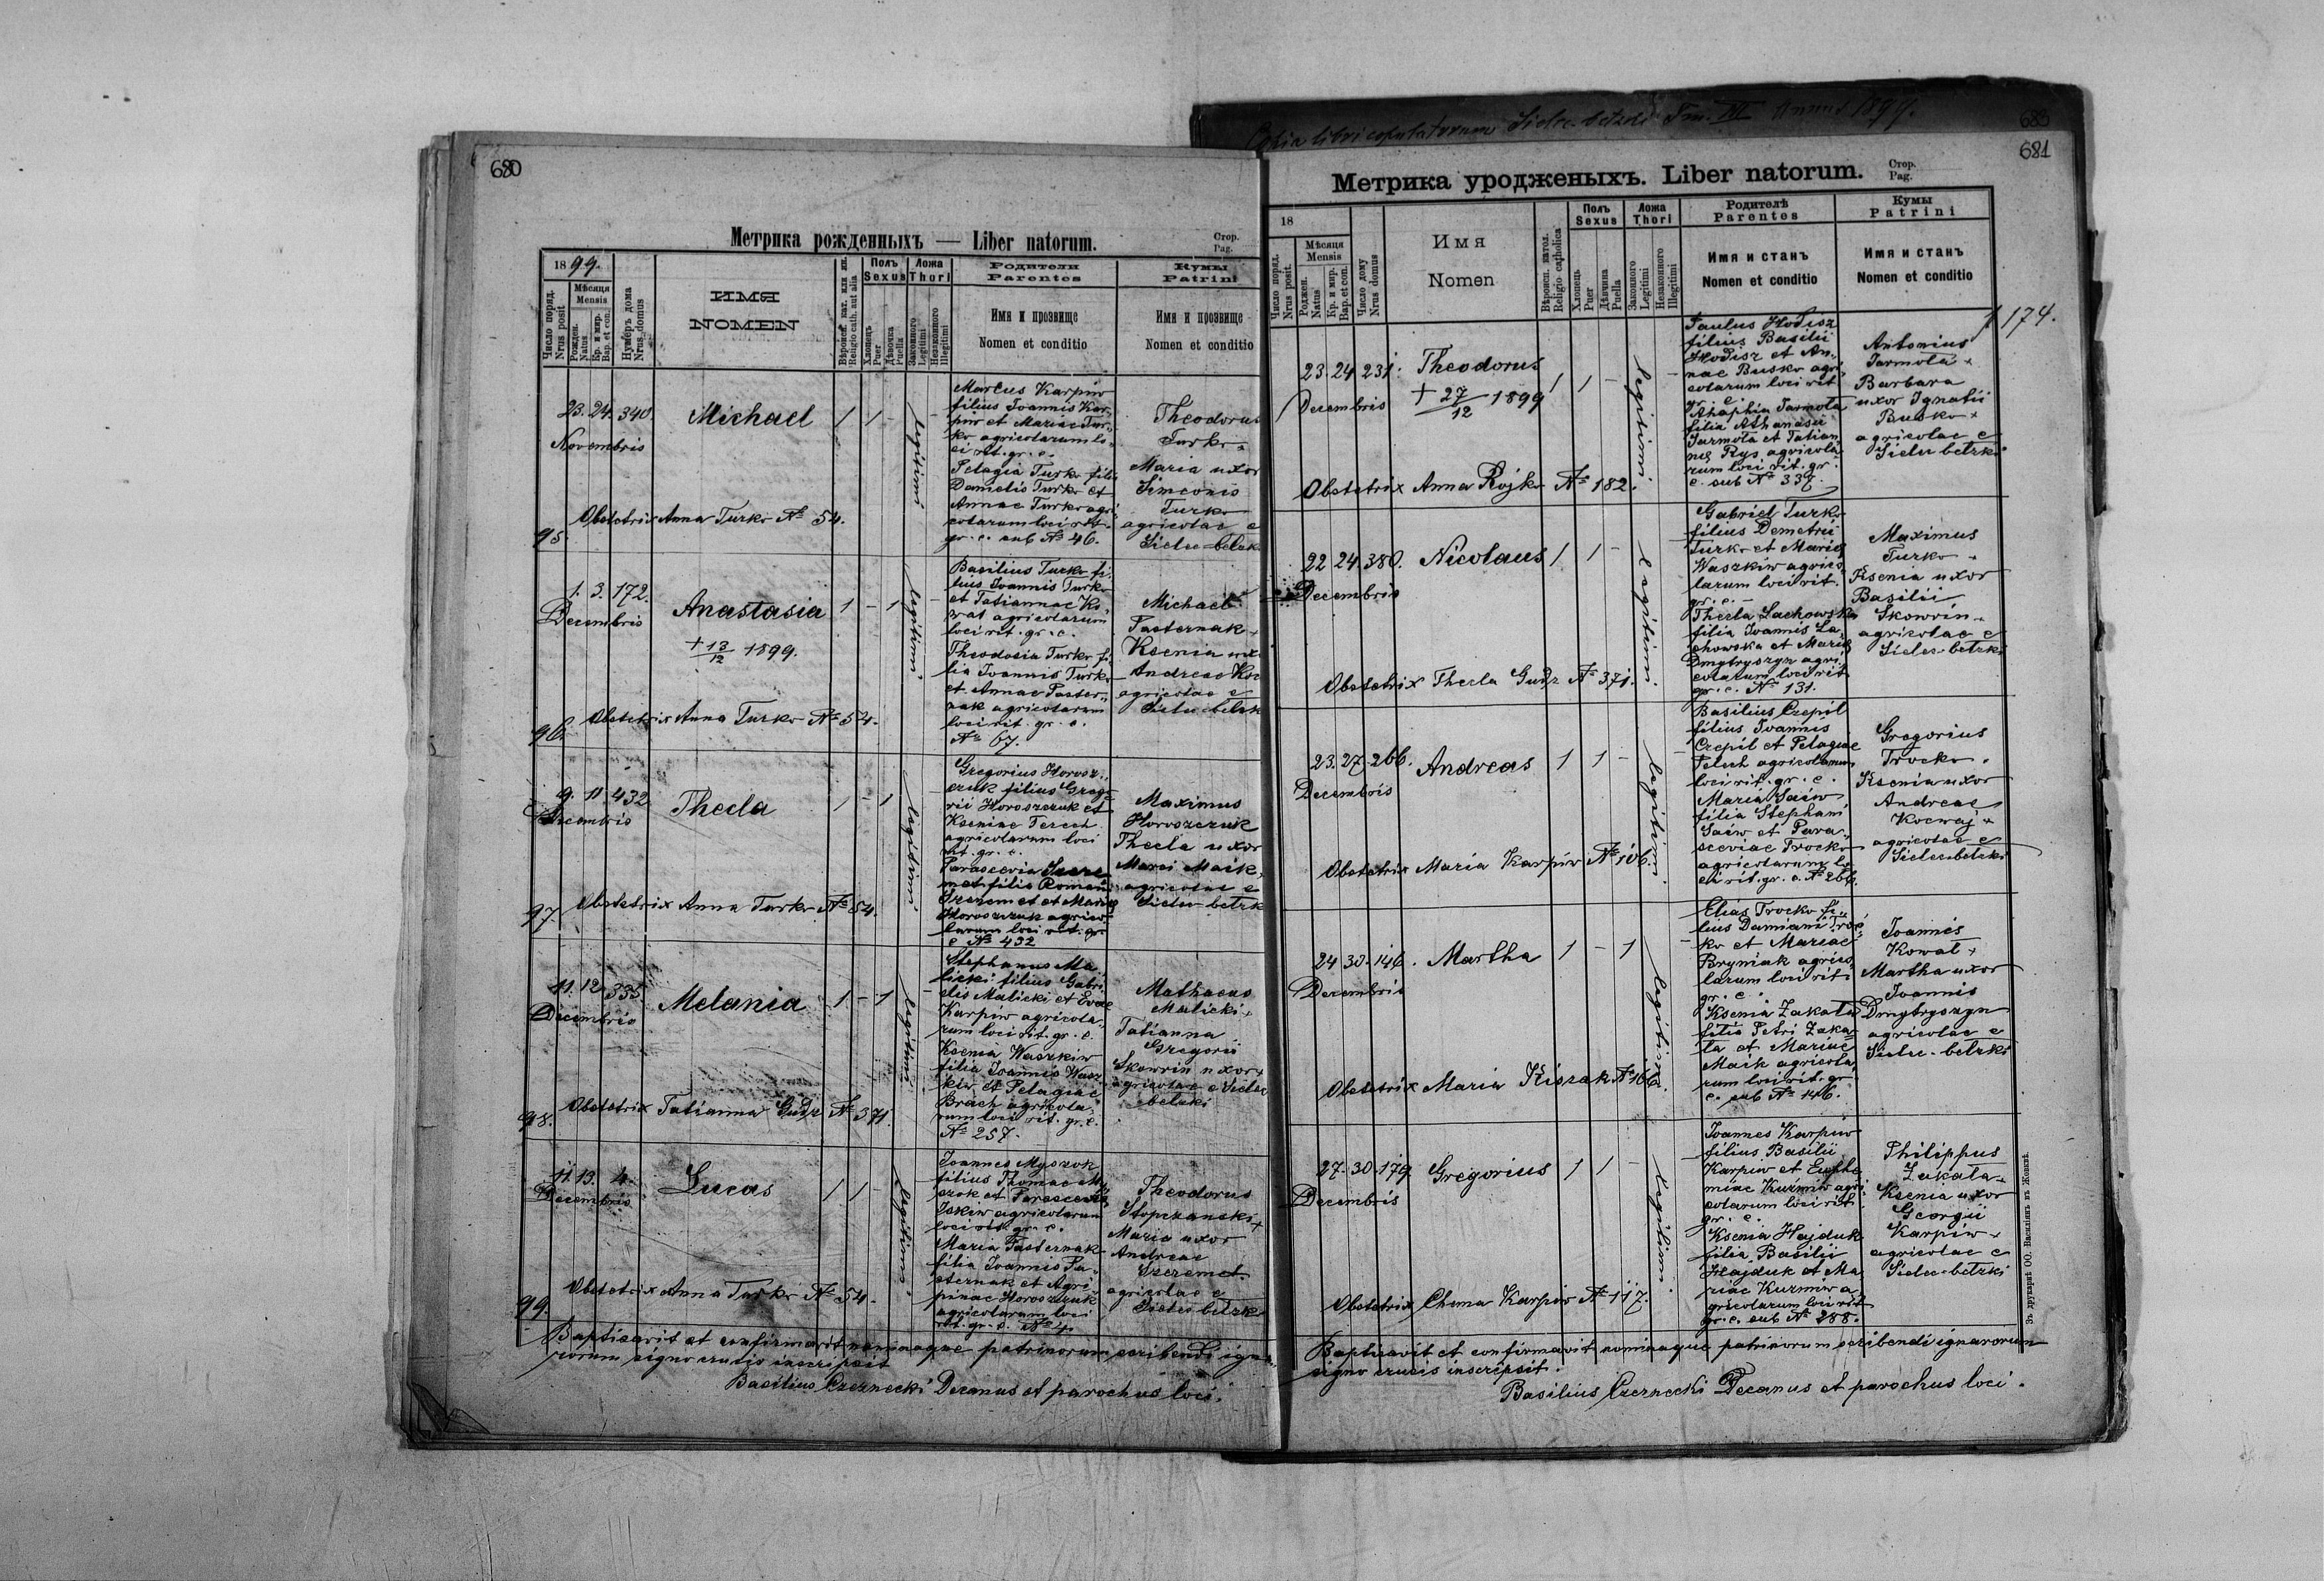 Copia libri copulatorum Sielec belzki Tm. III Annus 1899.
683
680
Метрика рожденныхъ — Liber natorum.
Стор.
Pag.
1899.
Число поряд.
Nrus posit
Мѣсяця
Mensis
Рожден.
Natus
Кр. и мир.
Bap. et con.
Нумеръ дома
Nrus domus
ИМЯ
NOMEN
Вѣроисп. кат. или ин.
Religio cath. aut alia
Полъ
Sexus
Хлопець
Puer
Дѣвочка
Puella
Ложа
Thori
Законного
Legitimi
Незаконного
Illegitimi
Родители
Parentes
Имя и прозвище
Nomen et conditio
Кумы
Patrini
Имя и прозвище
Nomen et conditio
23. 24. 340.
Novembris
Michael
1 1 -
legitimi
Marcus Karpiw
filius Joannis Kar-
piw et Mariae Tur-
ko agricolarum lo-
ci rit. gr. c.
Pelagia Turko filia
Danielis Turko et
Annae Turko agri
colarum loci rit.
gr. c. sub № 46.
Theodorus
Turko +
Maria uxor
Simeonis
Turko
agricolae e
Sielec belzk
Obstetrix Anna Turko № 54.
95.
1. 3. 172.
Decembris
Anastasia
+ 13/12 1899.
1 - 1
legitimi
Basilius Turko fi-
lius Joannis Turko
et Tatiannae Ko-
wal agricolarum
loci rit. gr. c.
Theodosia Turko fi-
lia Joannis Turko
et Annae Paster-
nak agricolarum
loci rit. gr. c.
№ 67.
Michael
Pasternak +
Ksenia uxor
Andreae
agricolae e
Sielec belzk
Obstetrix Anna Turko № 54.
96.
9. 11. 432
Decembris
Thecla
1 - 1
legitimi
Gregorius Horosz-
czuk filius Grego
rii Horoszczuk et
Kseniae Terech
agricolarum loci
rit. gr. c.
Parascevia Szere
met filia Romani
Szeremet et Mariae
Horoszczuk agrico
larum loci rit. gr.
c № 432
Maximus
Horoszczuk
Thecla uxor
Marci Maik +
agricolae e
Sielec belzk
Obstetrix Anna Turko № 54.
97.
11. 12. 335
Decembris
Melania
1 - 1
legitimi
Stephanus Ma
licki filius Gabri
elis Malicki et Evae
Karpiw agricola-
rum loci rit. gr. c.
Ksenia Waszkiw
filia Joannis Wasz
kiw et Pelagiae
Brach agricola-
rum loci rit. gr. c.
№ 257.
Mathaeus
Malicki +
Tatianna
Gregorii
Skowrin uxor +
agricolae e Sielec
belzki
Obstetrix Tatianna Gudz № 371.
98.
11. 13. 4.
Decembris
Lucas
1 1 -
legitimi
Joannes Myszok
filius Thomae My
szok et Parasceviae
Iskiw agricolarum
loci rit. gr. c.
Maria Pasternak
filia Joannis Pa-
sternak et Agri-
pinae Horoszczuk
agricolarum loci
rit. gr. c. № 4.
Theodorus
Stopczanski +
Maria uxor
Andreae
Szeremet
agricolae e
Sielec belzk
Obstetrix Anna Turko № 54.
99.
Baptisavit et confirmavit nominaque patrinorum scribendi igna-
rorum signo crucis inscripsit
Basilius Czernecki Decanus et parochus loci.
681
Метрика уродженыхъ. Liber natorum.
Стор.
Pag.
174.
18
Число поряд.
Nrus posit.
Мѣсяця
Mensis
Роджен.
Natus
Кр. и мир.
Bap. et con.
Число дому
Nrus domus
Имя
Nomen
Вѣроисп. катол.
Religio catholica
Полъ
Sexus
Хлопець
Puer
Дѣвчина
Puella
Ложа
Thori
Законного
Legitimi
Незаконного
Illegitimi
Родителѣ
Parentes
Имя и станъ
Nomen et conditio
Кумы
Patrini
Имя и станъ
Nomen et conditio
23. 24. 231.
Decembris
Theodorus
+ 27/12 1899
1 1 -
legitimi
Paulus Hodisz
filius Basilii
Hodisz et An-
nae Busko agri-
colarum loci rit
gr. c.
Ahaphia Jarmola
filia Athanasii
Jarmola et Tatian
nae Rys agricola
rum loci rit. gr.
c. sub № 337.
Antonius
Jarmola +
Barbara
uxor Ignatii
Busko +
agricolae e
Sielec belzki
Obstetrix Anna Rojko № 182.
22. 24. 380.
Decembris
Nicolaus
1 1 -
legitimi
Gabriel Turko
filius Demetrii
Turko et Mariae
Waszkiw agrico-
larum loci rit.
gr. c. -
Thecla Lachowska
filia Joannis La-
chowska et Mariae
Dmytryszyn agri
colarum loci rit
gr. c. № 131.
Maximus
Turko +
Ksenia uxor
Basilii
Skowrin +
agricolae e
Sielec belzki
Obstetrix Thecla Gudz № 371.
23. 27. 266.
Decembris
Andreas
1 1 -
legitimi
Basilius Czepil
filius Joannis
Czepil et Pelagiae
Pelech agricolarum
loci rit. gr. c.
Maria Saiw
filia Stephani
Saiw et Para-
sceviae Trocko
agricolarum lo
ci rit. gr. c. № 266.
Gregorius
Trocko +
Ksenia uxor
Andreae
Kocwaj +
agricolae e
Sielec belzki
Obstetrix Maria Karpiw № 106.
24. 30. 146.
Decembris
Martha
1 - 1
legitimi
Elias Trocko fi-
lius Damiani Troc
ko et Mariae
Bryniak agrico-
larum loci rit.
gr. c.
Ksenia Zakala
filia Petri Zaka-
la et Mariae
Maik agricola
rum loci rit. gr
c. sub № 146.
Joannes
Kowal +
Martha uxor
Joannis
Dmytryszyn
agricolae e
Sielec belzki
Obstetrix Maria Kiszak № 166.
27. 30. 179.
Decembris
Gregorius
1 1 -
legitimi
Joannes Karpiw
filius Basilii
Karpiw et Euphe
miae Kuzmiw agri
colarum loci rit
gr. c.
Ksenia Hajduk
filia Basilii
Hajduk et Ma
riae Kuzmiw a
gricolarum loci rit
gr. c. sub № 288.
Philippus
Zakala +
Ksenia uxor
Georgii
Karpiw +
agricolae e
Sielec belzki
Obstetrix Chema Karpiw № 117.
Baptisavit et confirmavit nominaque patrinorum scribendi ignarorum
signo crucis inscripsit.
Basilius Czernecki Decanus et parochus loci.
Зъ друкарнѣ ОО. Василіянъ въ Жовквѣ.